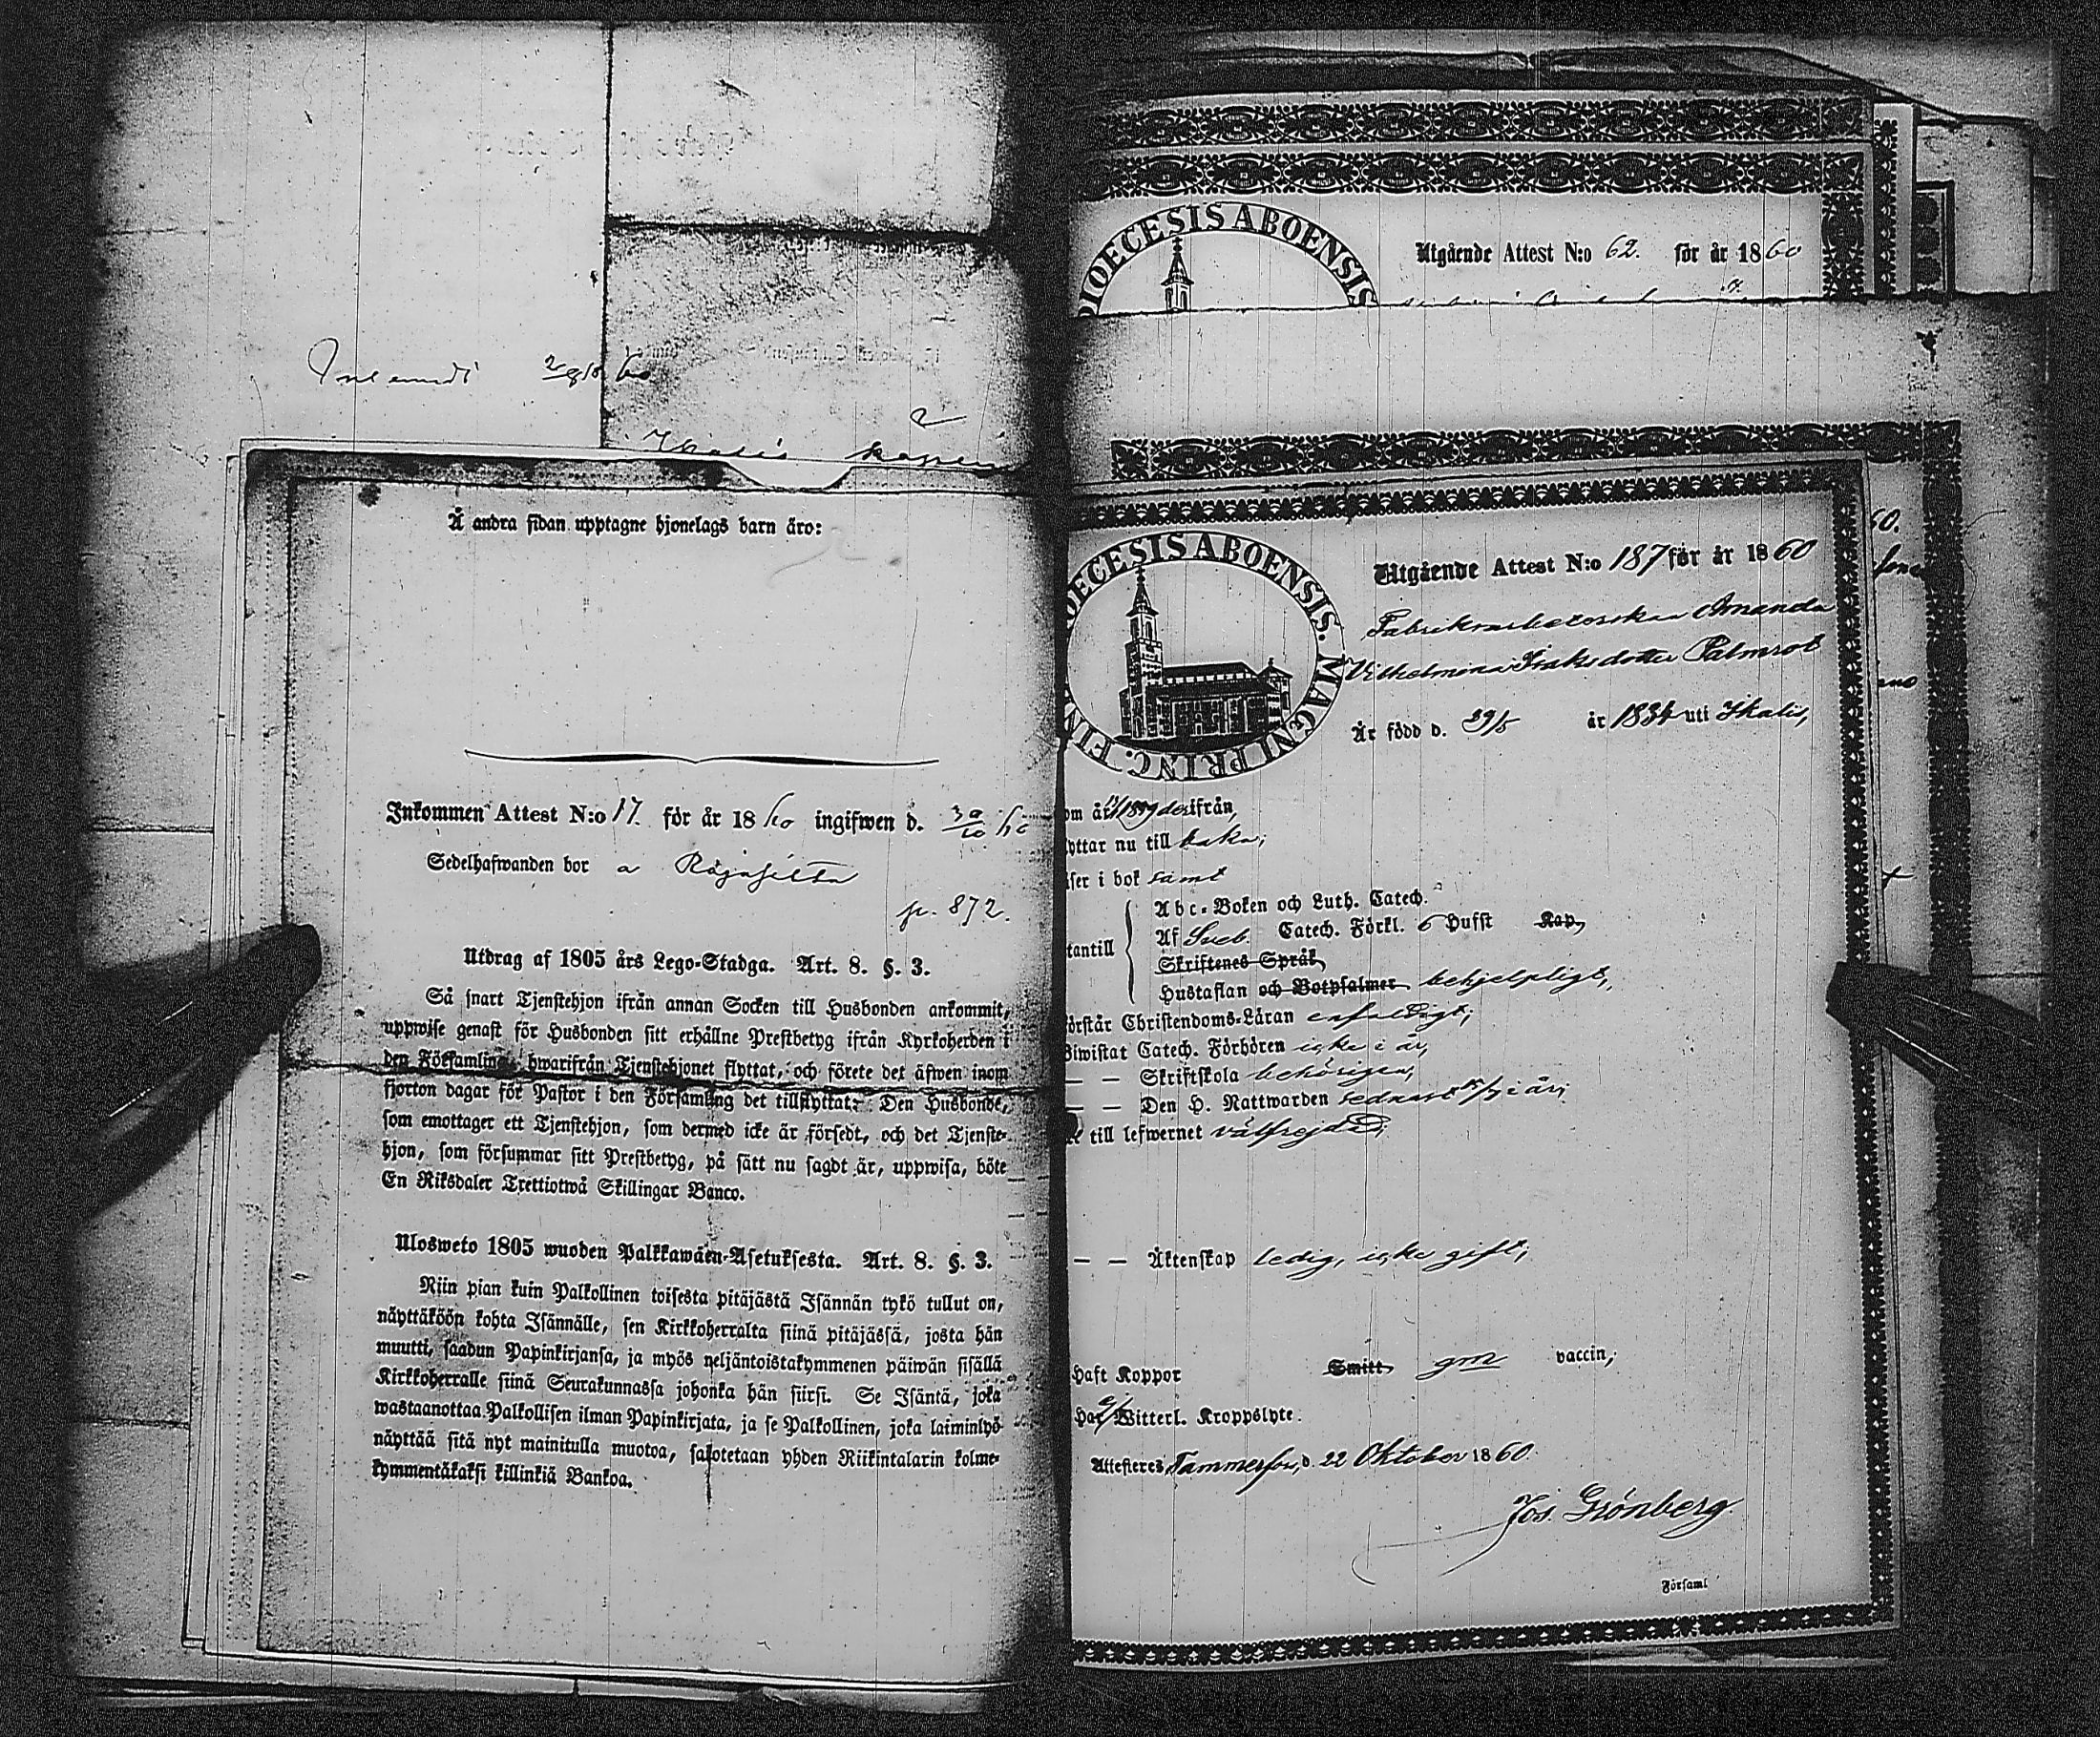 Å andra sidan upptagne hjonelags barn äro:
Inkommen Attest N:o 17. för år 1860 ingifwen d. 30/10 60
Sedelhafwanden bor a Röyhiö
p. 872.
Utdrag af 1805 års Lego-Stadga. Art. 8. §. 3.
Så snart Tjenstehjon ifrån annan Socken till Husbonden ankommit,
uppwise genast för Husbonden sitt erhållne Prestbetyg ifrån Kyrkoherden i
den Församling, hwarifrån Tjenstehjonet flyttat, och förete det äfwen inom
fjorton dagar för Pastor i den Församling det tillflyttat. Den Husbonde,
som emottager ett Tjenstehjon, som dermed icke är försedt, och det Tjenste-
hjon, som försummar sitt Prestbetyg, på sätt nu sagdt är, uppwisa, böte
En Riksdaler Trettiotwå Skillingar Banco.
Ulosweto 1805 wuoden Palkkawäen-Asetuksesta. Art. 8. §. 3.
Niin pian kuin Palkollinen toisesta pitäjästä Isännän tykö tullut on,
näyttäköön kohta Isännälle, sen Kirkkoherralta siinä pitäjässä, josta hän
muutti, saadun Papinkirjansa, ja myös neljäntoistakymmenen päiwän sisällä
Kirkkoherralle siinä Seurakunnassa johonka hän siirsi. Se Isäntä, joka
wastaanottaa Palkollisen ilman Papinkirjata, ja se Palkollinen, joka laiminlyö
näyttää sitä nyt mainitulla muotoa, sakotetaan yhden Riikintalarin kolme-
kymmentäkaksi killinkiä Bankoa.
DIOECESIS ABOENSIS
Utgående Attest N:o 62. för år 1860
OECESIS ABOENSIS. MAGNI PRINC. FINL
Utgående Attest N:o 187 för år 1860
Fabriksarbeterskan Amanda
Vilhelmina Isaksdotter Palmrot
Är född d. 29/5 år 1834 uti Ikalis,
om år 1859 derifrån,
yttar nu till baka;
äser i bok samt
Abc-Boken och Luth. Catech.
tantill Af Sveb. Catech. Förkl. 6 Hufst Kap,
Skriftenes Språk,
Hustaflan och Botpsalmer behjelpligt,
örstår Christendoms-Läran enfaldigt;
Biwistat Catech. Förhören icke i år,
— — Skriftskola behörigen;
— — Den H. Nattwarden sednast i år;
till lefwernet välfrejdad;
— — Äktenskap ledig, icke gift;
Haft Koppor Smitt, gm vaccin;
Har Witterl. Kroppslyte.
Attesteres Tammerfors, d. 22 Oktober 1860.
Jos. Grönberg.
Församl